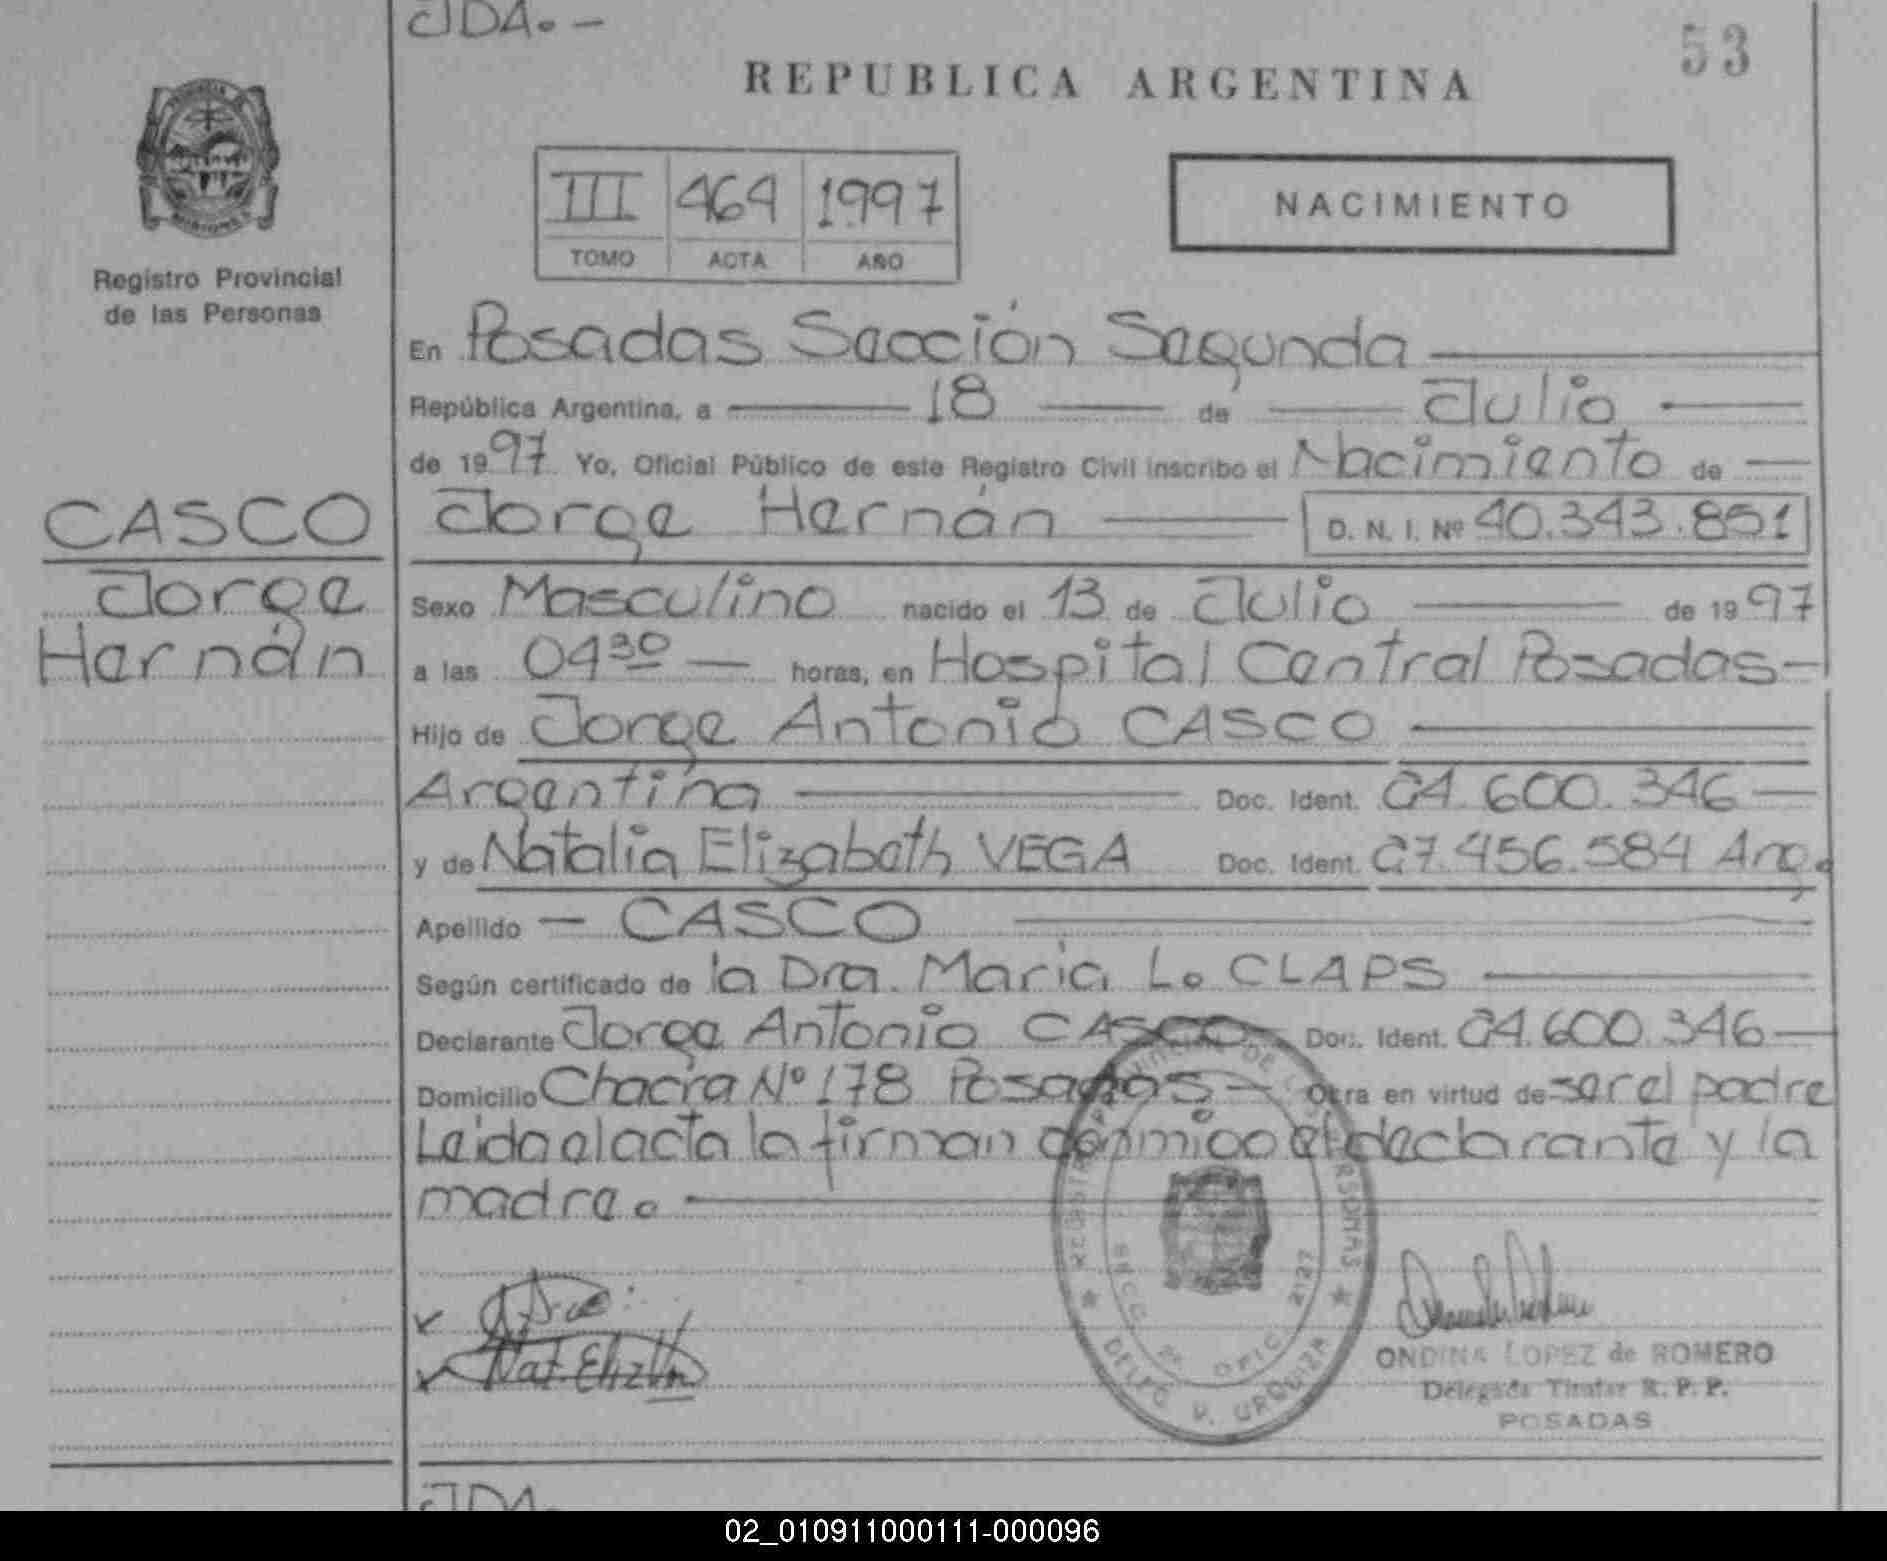 JDA.-
53
REPUBLICA ARGENTINA
III 464 1997
TOMO ACTA AÑO
NACIMIENTO
Registro Provincial
de las Personas
CASCO
Jorge
Hernán
En Posadas Sección Segunda
República Argentina, a 18 de Julio
de 1997 Yo, Oficial Público de este Registro Civil inscribo el Nacimiento de
Jorge Hernán D. N. I. Nº 40.343.851
Sexo Masculino nacido el 13 de Julio de 1997
a las 04 30 horas, en Hospital Central Posadas-
Hijo de Jorge Antonio CASCO
Argentina Doc. Ident. 24.600.346
y de Natalia Elizabeth VEGA Doc. Ident. 27.456.584 Arg.
Apellido - CASCO
Según certificado de la Dra. Maria L. CLAPS
Declarante Jorge Antonio CASCO Doc. Ident. 24.600.346
Domicilio Chacra Nº 178 Posadas - Obra en virtud de ser el padre
Leida el acta la firman conmigo el declarante y la
madre.
REGISTRO PROVINCIAL DE LAS PERSONAS
SECC. 2ª OFIC. 2127
DELFO V. URQUIZA
Nat. Eliz
ONDINA LOPEZ de ROMERO
Delegada Titular R. P. P.
POSADAS
JDA.
02_010911000111-000096